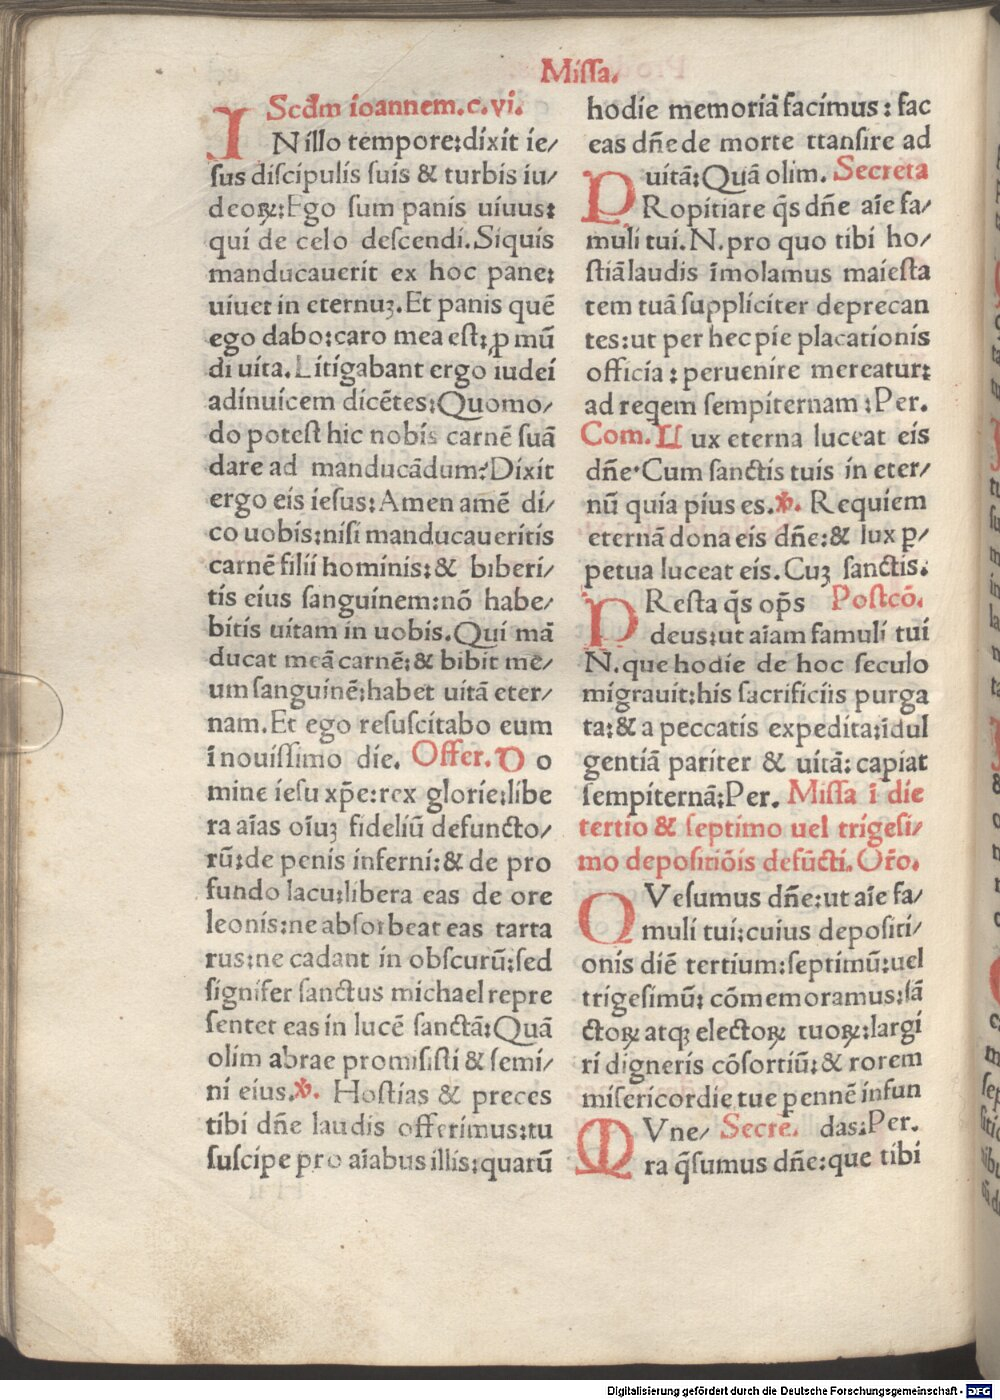 Missa.
Scd̄m ioannem.c.vi.
IN illo tempore:dixit ie/
sus discipulis suis & turbis iu/
deoꝝ:Ego sum panis uiuus:
qui de celo descendi.Siquis
manducauerit ex hoc pane:
uiuet in eternuꝫ.Et panis quē
ego dabo:caro mea est:ꝓ mū
di uita.Litigabant ergo iudei
adinuicem dicētes:Quomo/
do potest hic nobis carnē suā
dare ad manducādum?Dixit
ergo eis iesus:Amen amē di/
co uobis:nisi manducaueritis
carnē filii hominis:& biberi/
tis eius sanguinem:nō habe/
bitis uitam in uobis.Qui mā
ducat meā carnē:& bibit me/
um sanguinē:habet uitā eter/
nam.Et ego resuscitabo eum
ī nouissimo die. Offer. Do
mine iesu xp̄e:rex glorie:libe
ra aīas oīuꝫ fideliū defuncto/
rū:de penis inferni:& de pro
fundo lacu:libera eas de ore
leonis:ne absorbeat eas tarta
rus:ne cadant in obscurū:sed
signifer sanctus michael repre
sentet eas in lucē sanctā:Quā
olim abrae promisisti & semi/
ni eius.℣. Hostias & preces
tibi dn̄e laudis offerimus:tu
suscipe pro aīabus illis:quarū
hodie memoriā facimus: fac
eas dn̄e de morte ttansire ad
uitā:Quā olim. Secreta
PRopitiare q̄s dn̄e aīe fa/
muli tui.N.pro quo tibi ho/
stiā laudis īmolamus maiesta
tem tuā suppliciter deprecan
tes:ut per hec pie placationis
officia: peruenire mereatur:
ad reqem sempiternam:Per.
Com. Lux eterna luceat eis
dn̄e·Cum sanctis tuis in eter/
nū quia pius es.℣. Requiem
eternā dona eis dn̄e:& lux p/
petua luceat eis.Cuꝫ sanctis.
PResta q̄s op̄s Postcō.
deus:ut aīam famuli tui
N.que hodie de hoc seculo
migrauit:his sacrificiis purga
ta:& a peccatis expedita:īdul
gentiā pariter & uitā: capiat
sempiternā:Per. Missa ī die
tertio & septimo uel trigesi/
mo depositiōis defūcti.Or̄o.
QVesumus dn̄e:ut aīe fa/
muli tui:cuius depositi/
onis diē tertium:septimū:uel
trigesimū: cōmemoramus:sā
ctoꝝ atqꝫ electoꝝ tuoꝝ:largi
ri digneris cōsortiū:& rorem
misericordie tue pennē infun
MVne/ Secre. das:Per.
ra q̄sumus dn̄e:que tibi
Digitalisierung gefördert durch die Deutsche Forschungsgemeinschaft - DFG